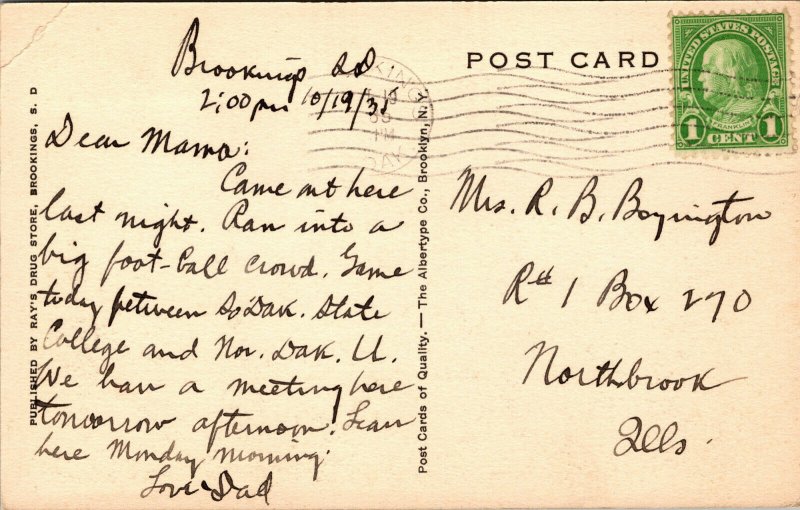 POST CARD
UNITED STATES POSTAGE
FRANKLIN
1 CENT 1
PUBLISHED BY RAY'S DRUG STORE, BROOKINGS, S. D
Brookings SD
2:00 pm 10/19/35
Dear Mama:
Came out here
last night. Ran into a
big foot-ball crowd. Game
today between So Dak. State
College and Nor. Dak. U.
We have a meeting here
tomorrow afternoon. Leave
here Monday morning.
Love Dad
Post Cards of Quality. — The Albertype Co., Brooklyn, N. Y.
Mrs. R. B. Boyington
R# 1 Box 270
Northbrook
Ills.